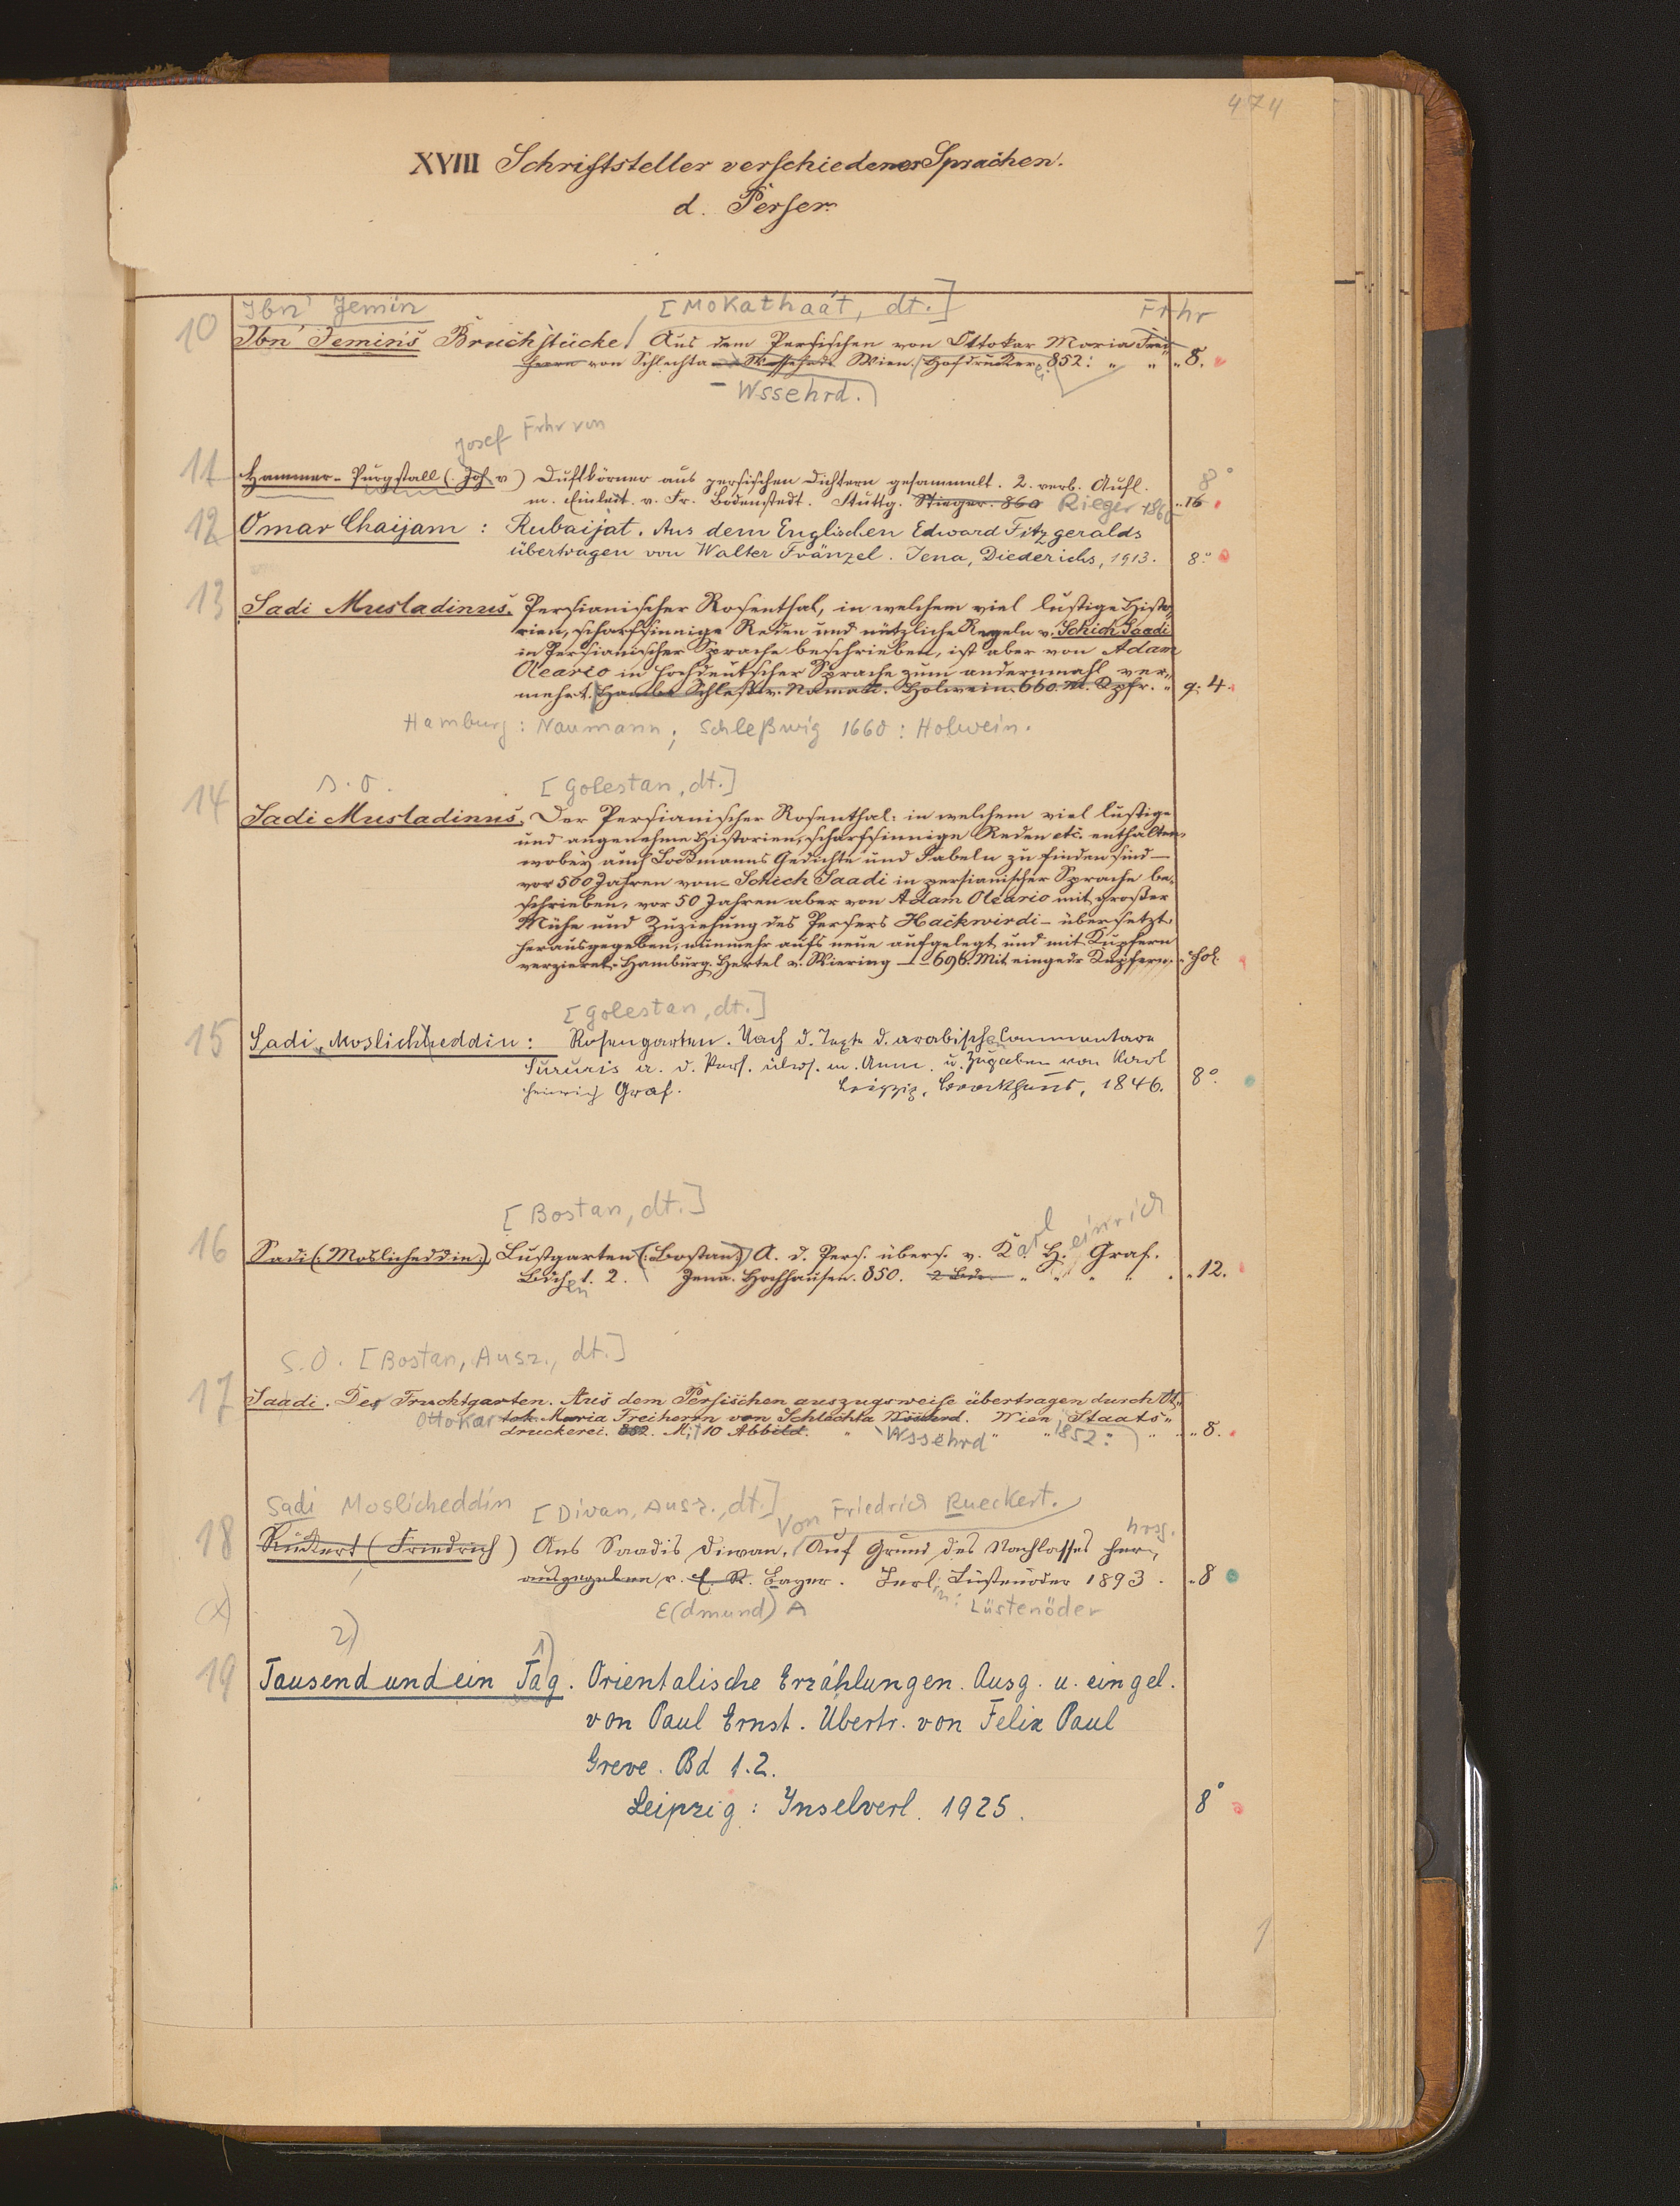 474
XVIII Schriftsteller verschiedener Sprachen.
d. Perser.
Ibn' Jemin [Mokathaát, dt.] Frhr
10 Ibn' Jemin's Bruchstücke / Aus dem Persischen von Ottokar Maria Frei-
herrn von Schlechta Wssehrd. Wien. Hofdruckerei 852: " " " 8.
- Wssehrd.
Josef Frhr von
11 Hammer-Purgstall (Jos. v) Duftkörner aus persischen Dichtern gesammelt. 2. verb. Aufl. 8°
m. Einleit. v. Fr. Bodenstedt. Stuttg. Stieger. 860 Rieger 1860 " 16
12 Omar Chaijam : Rubaijat. Aus dem Englischen Edward Fitzgeralds
übertragen von Walter Fränzel. Jena, Diederichs, 1913. 8°
13 Sadi Musladinus. Persianischer Rosenthal, in welchem viel lustige Histo-
rien, scharfsinnige Reden und nützliche Regeln v. Schich Saadi
in Persianischer Sprache beschrieben, ist aber von Adam
Oleario in hochdeutscher Sprache zum andernmahl ver-
mehrt. Hamb. Schlesw. Naman. Holwein. 660. M. Kpfr. " q. 4.
Hamburg: Naumann; Schleßwig 1660: Holwein.
s. o. [Golestan, dt.]
14 Sadi Musladinus. Der Persianischer Rosenthal: in welchem viel lustige
und angenehme Historien, scharfsinnige Reden etc. enthalten,
wobey auch Lockmanns Gedichte und Fabeln zu finden sind —
vor 500 Jahren von Schich Saadi in persianischer Sprache be-
schrieben, vor 50 Jahren aber von Adam Oleario mit großer
Mühe und Zuziehung des Persers Hackwirdi - übersetzt,
herausgegeben, nunmehr aufs neue aufgelegt und mit Kupfern
verzieret. Hamburg. Hertel v. Wiering — 1696. Mit eingedr Kupfern. " Fol.
[Golestan, dt.]
15 Sadi, Moslicheddin: Rosengarten. Nach d. Texte d. arabischen Commentare
Sururis a. d. Pers. übers. m. Anm. u. Zugaben von Karl
Heinrich Graf. Leipzig, Brockhaus, 1846. 8°
[Bostan, dt.]
16 Sadi (: Moslicheddin:), Lustgarten (: Bostan:) A. d. Pers. übers. v. Karl Heinrich Graf.
Bdchen 1. 2. Jena. Hochhausen. 850. 2 Bde. " " " " " 12.
s. o. [Bostan, Ausz., dt.]
17 Saadi. Der Fruchtgarten. Aus dem Persischen auszugsweise übertragen durch Ot-
Ottokar tok. Maria Freiherrn von Schlechta Wssehrd. Wien, Staats-
druckerei. 852. Mit 10 Abbild. " Wssehrd " " 1852: " " 8.
Sadi Moslicheddin [Divan, Ausz., dt.] Von Friedrich Rueckert.
18 Rückert (Friedrich) Aus Saadis Diwan. Auf Grund des Nachlasses her- hrsg.
ausgegeben v. E. A. Bayer. Berlin: Lüstenöder 1893. " 8
(x) E(dmund) A Lüstenöder
2) 1)
19 Tausend und ein Tag. Orientalische Erzählungen. Ausg. u. eingel.
von Paul Ernst. Übertr. von Felix Paul
Greve. Bd 1.2.
Leipzig: Inselverl. 1925. 8°